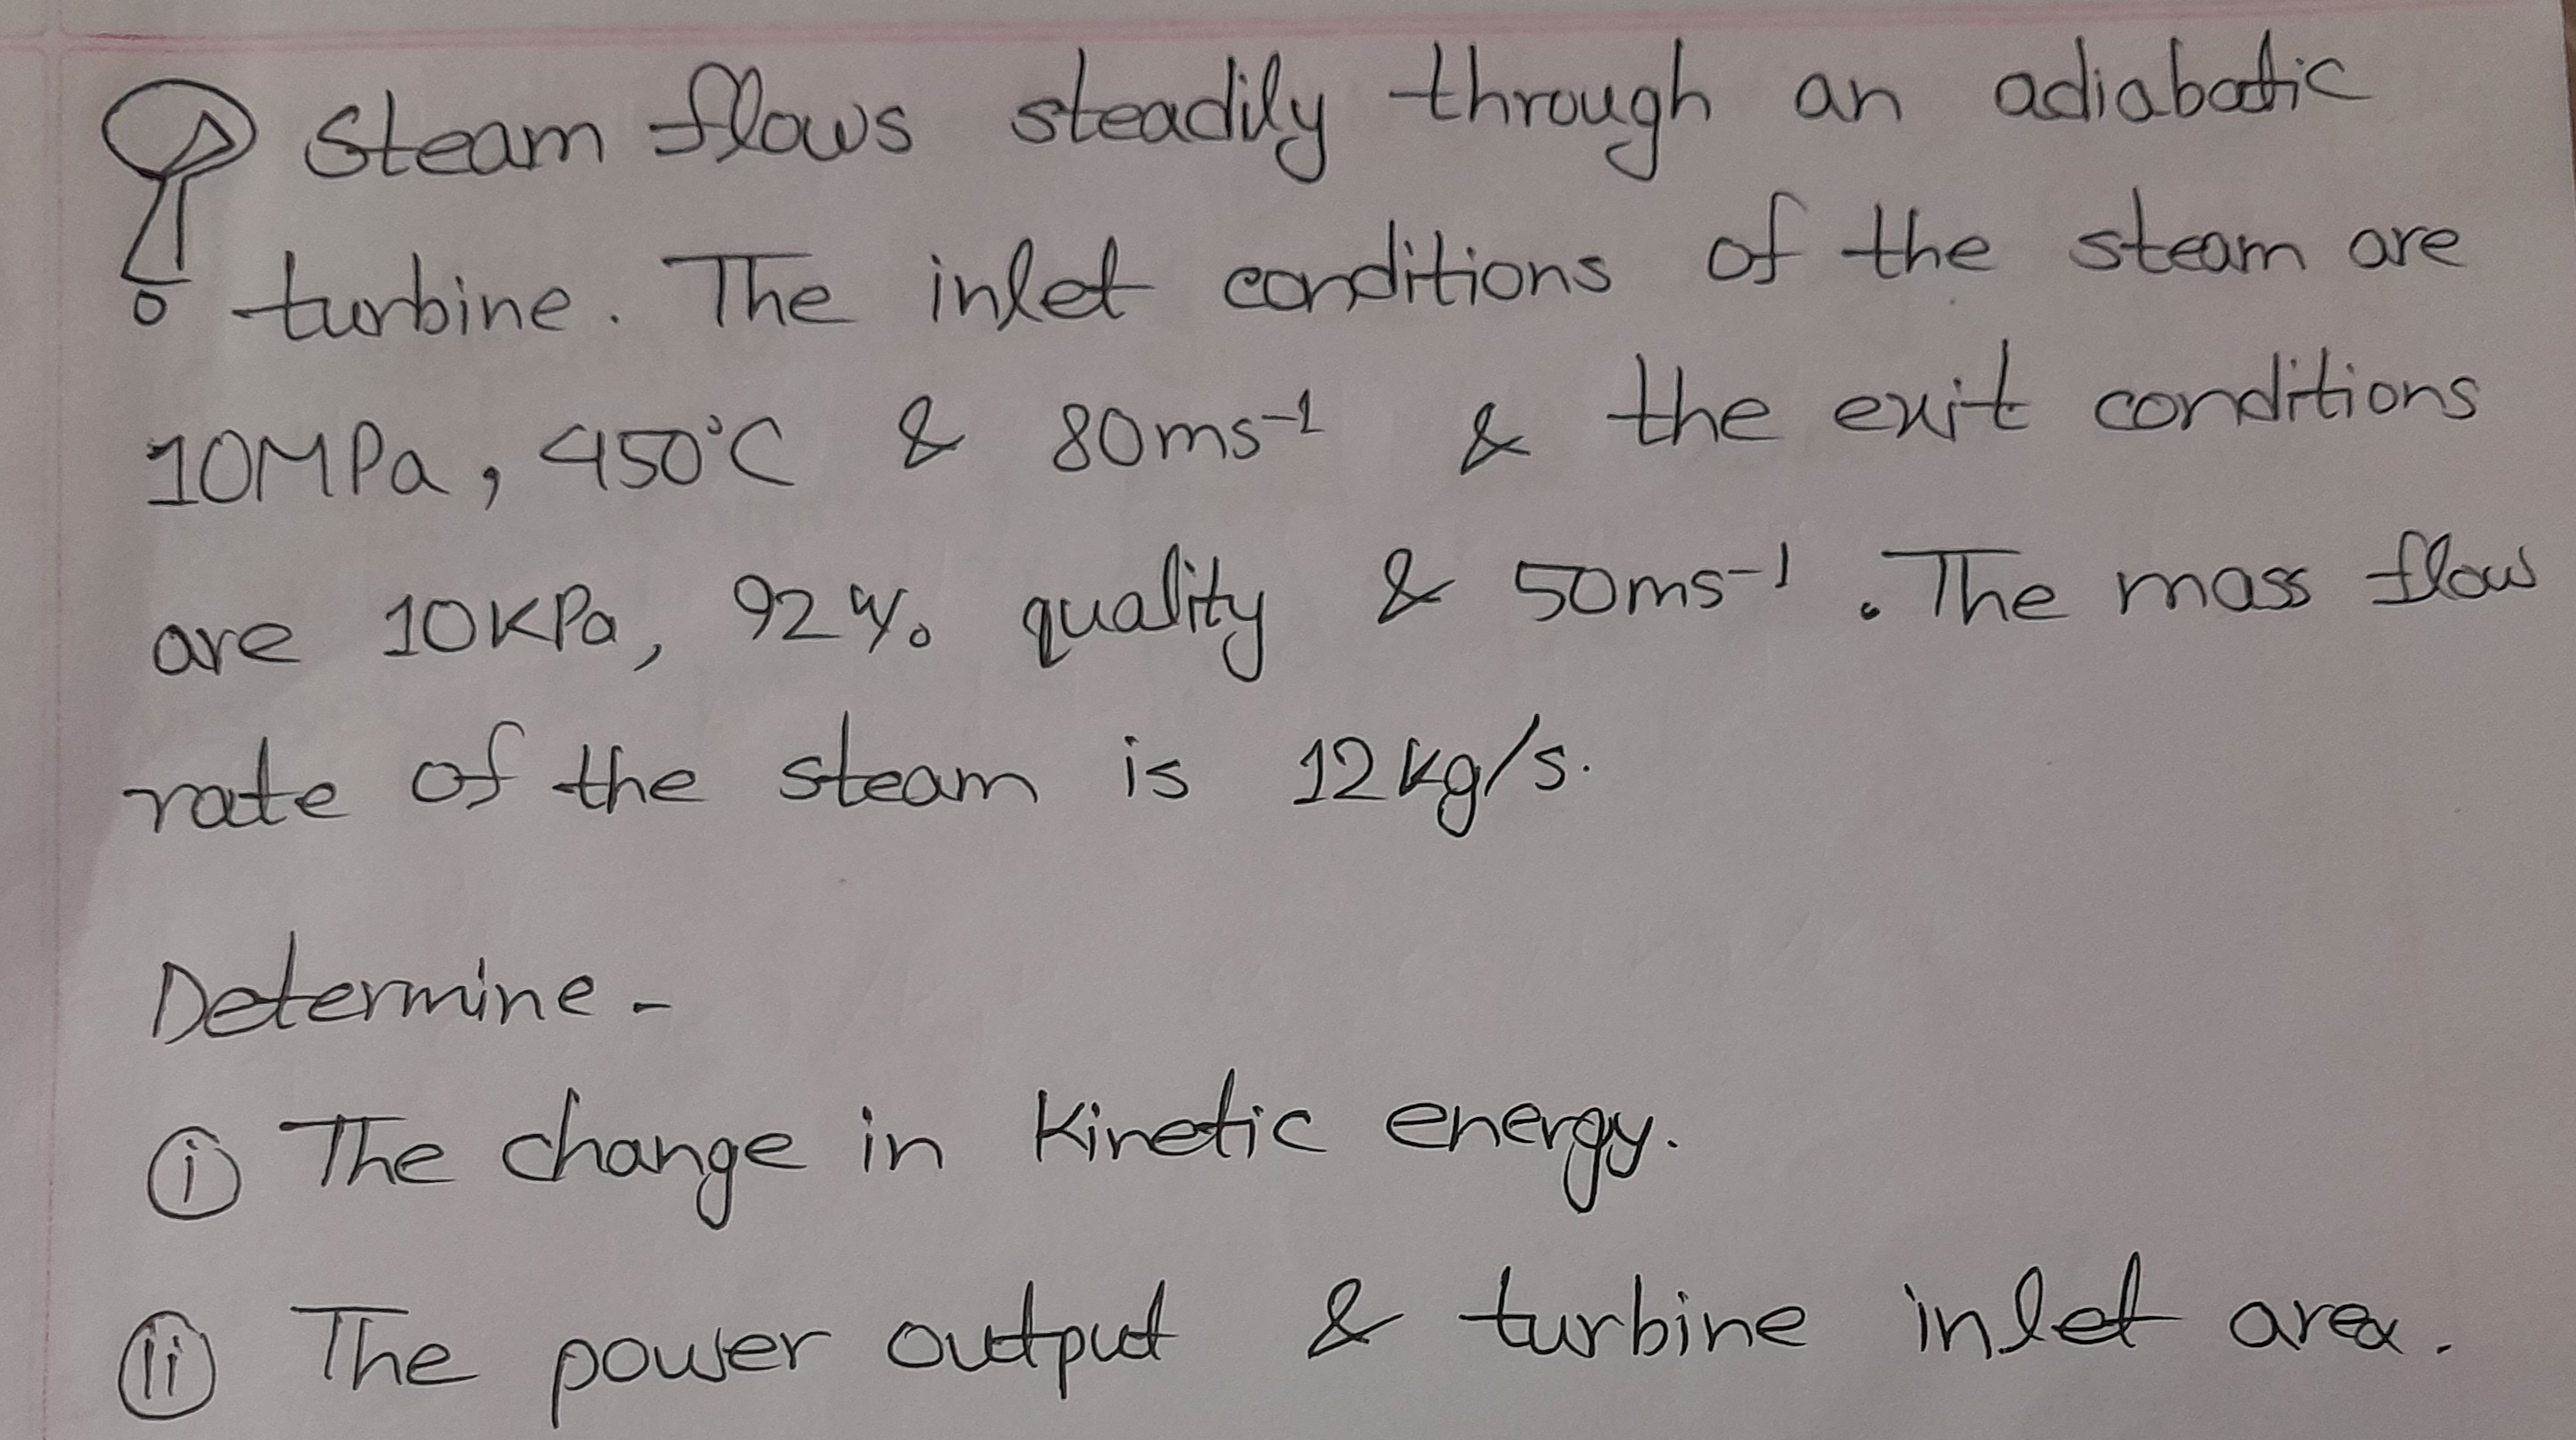 Steam flows steadily through an adiabatic
turbine. The inlet conditions of the steam are
10MPa, 450°C & 80ms⁻¹ & the exit conditions
are 10KPa, 92% quality & 50ms⁻¹. The mass flow
rate of the steam is 12kg/s.
Determine -
(i) The change in Kinetic energy.
(ii) The power output & turbine inlet area.